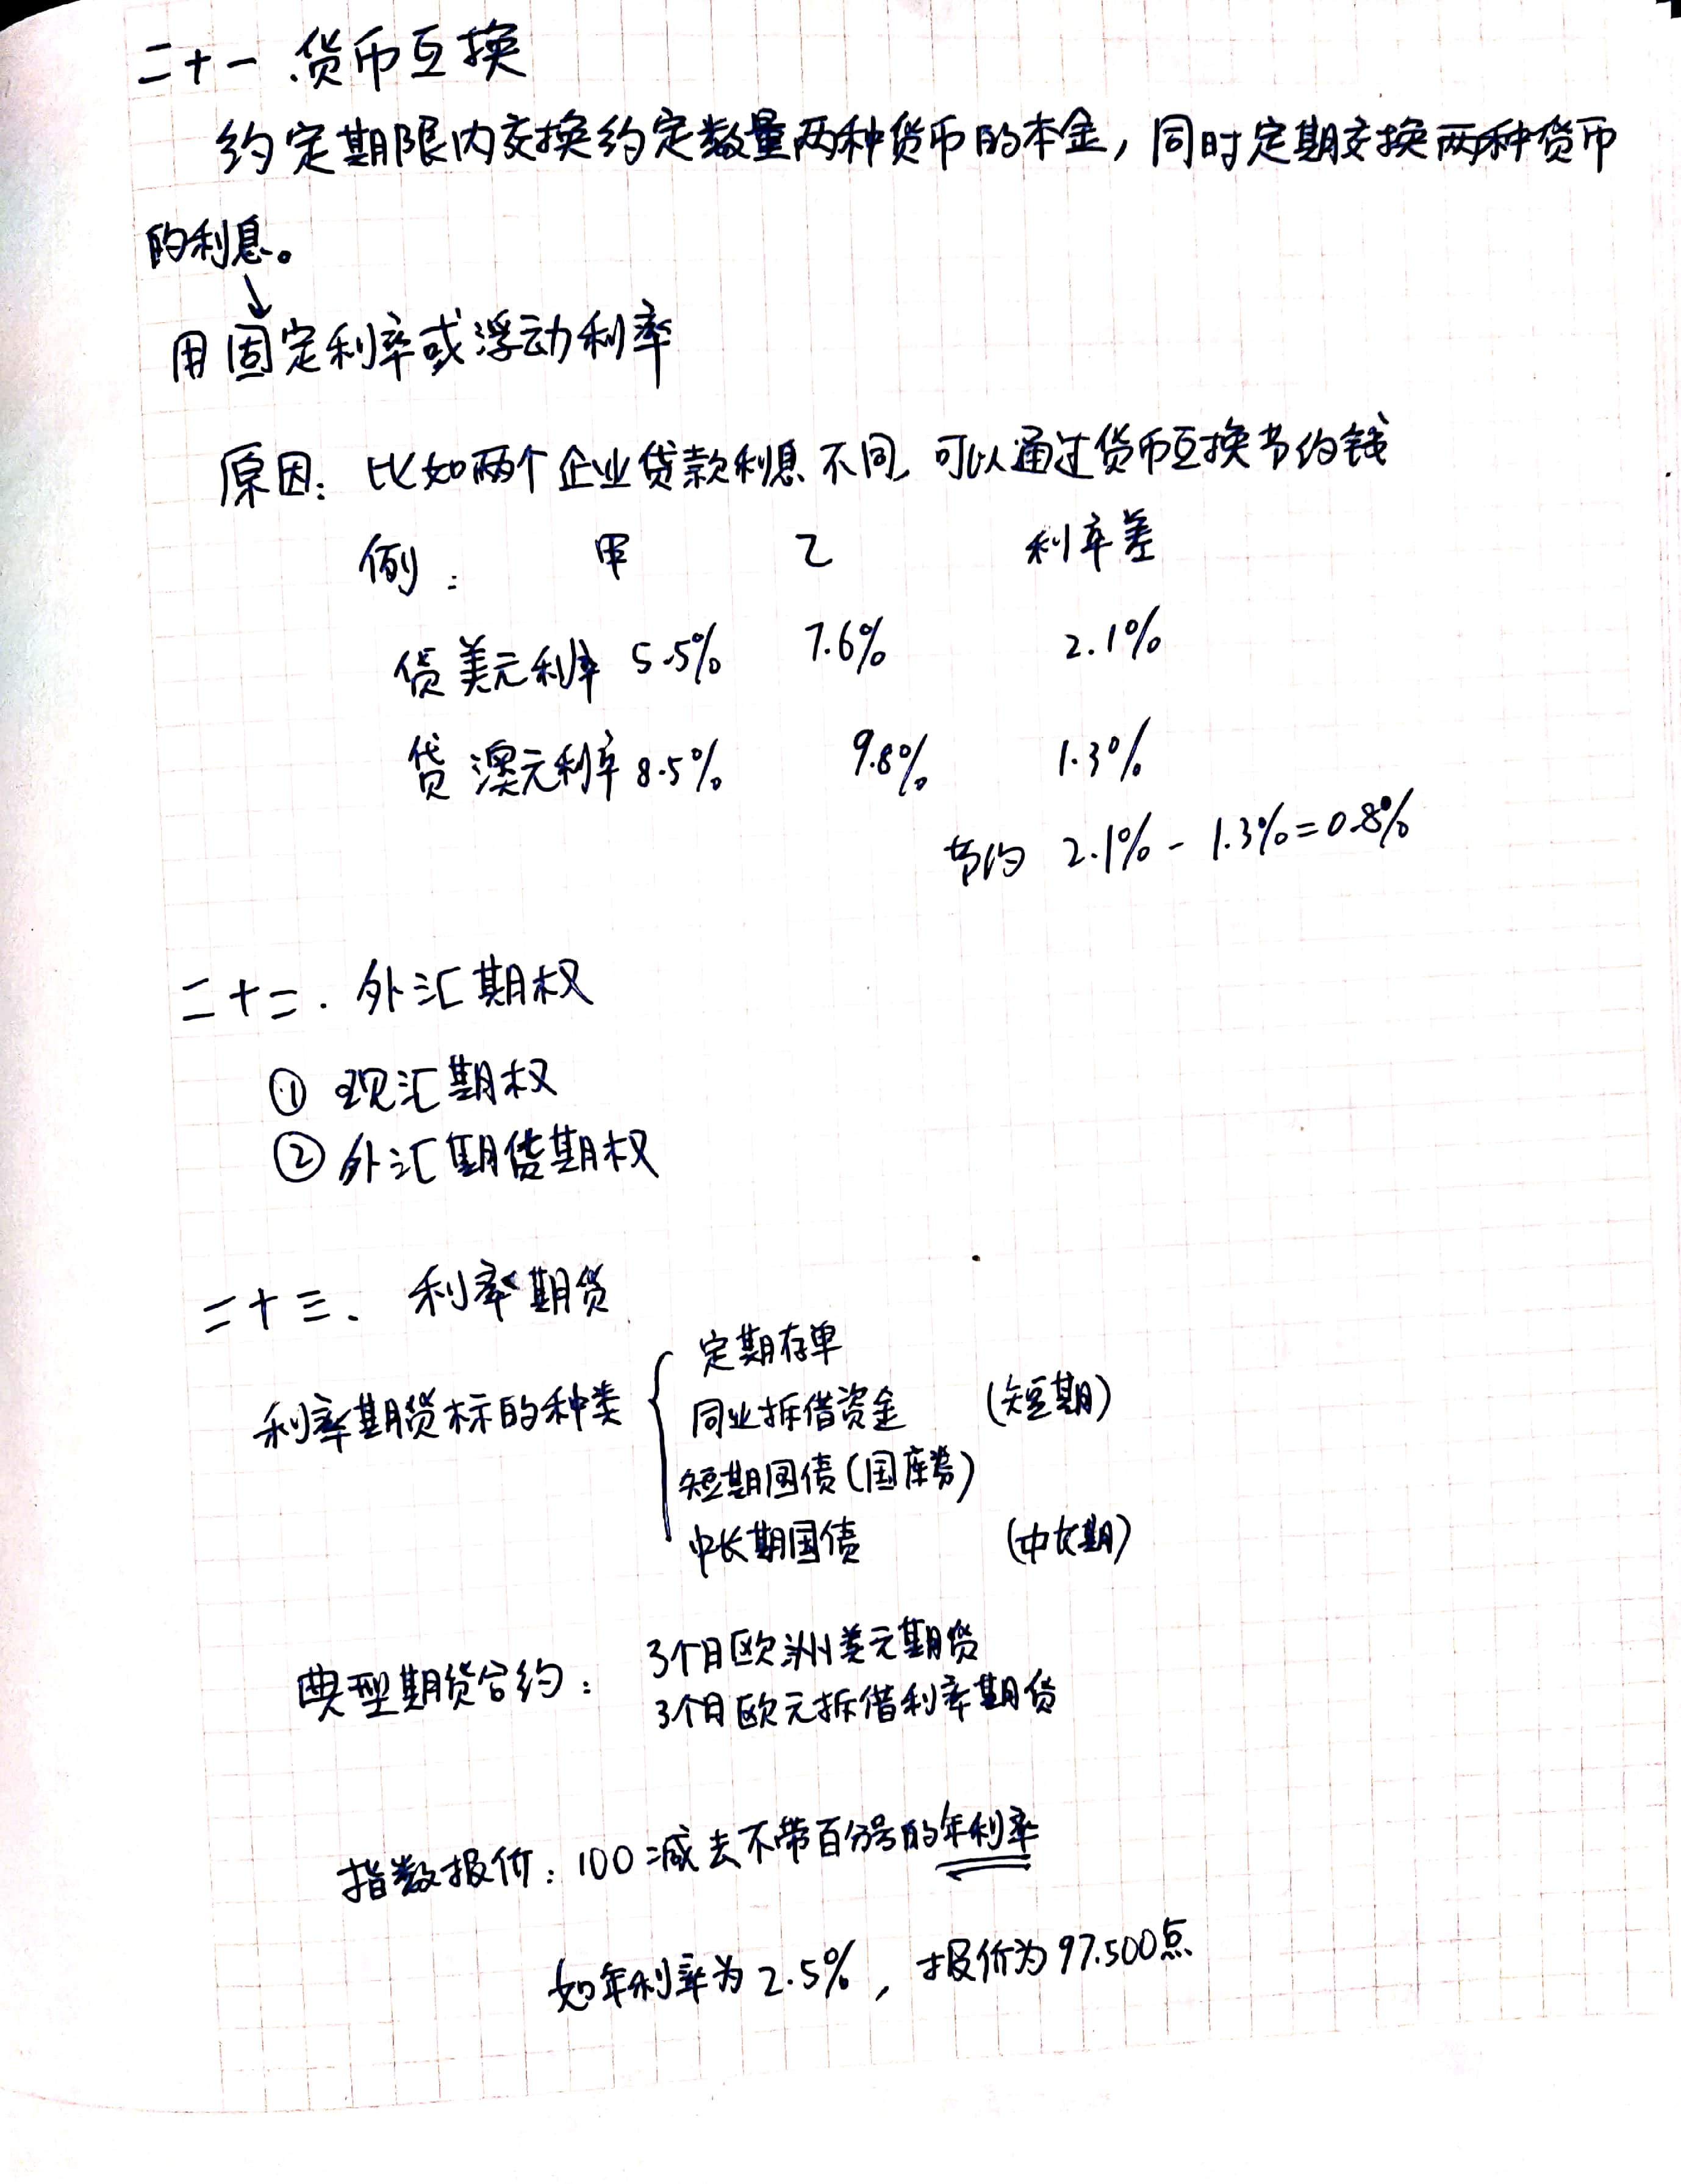 二十一.货币互换
约定期限内交换约定数量两种货币的本金,同时定期交换两种货币
的利息。
↓
用固定利率或浮动利率
原因: 比如两个企业贷款利息不同,可以通过货币互换节约钱
例: 甲 乙 利率差
贷美元利率 5.5% 7.6% 2.1%
贷澳元利率 8.5% 9.8% 1.3%
节约 2.1% - 1.3% = 0.8%
二十二. 外汇期权
① 现汇期权
② 外汇期货期权
二十三、利率期货
利率期货标的种类
定期存单
同业拆借资金 (短期)
短期国债(国库券)
中长期国债 (中长期)
典型期货合约: 3个月欧洲美元期货
3个月欧元拆借利率期货
指数报价: 100减去不带百分号的年利率
如年利率为2.5%, 报价为97.500点